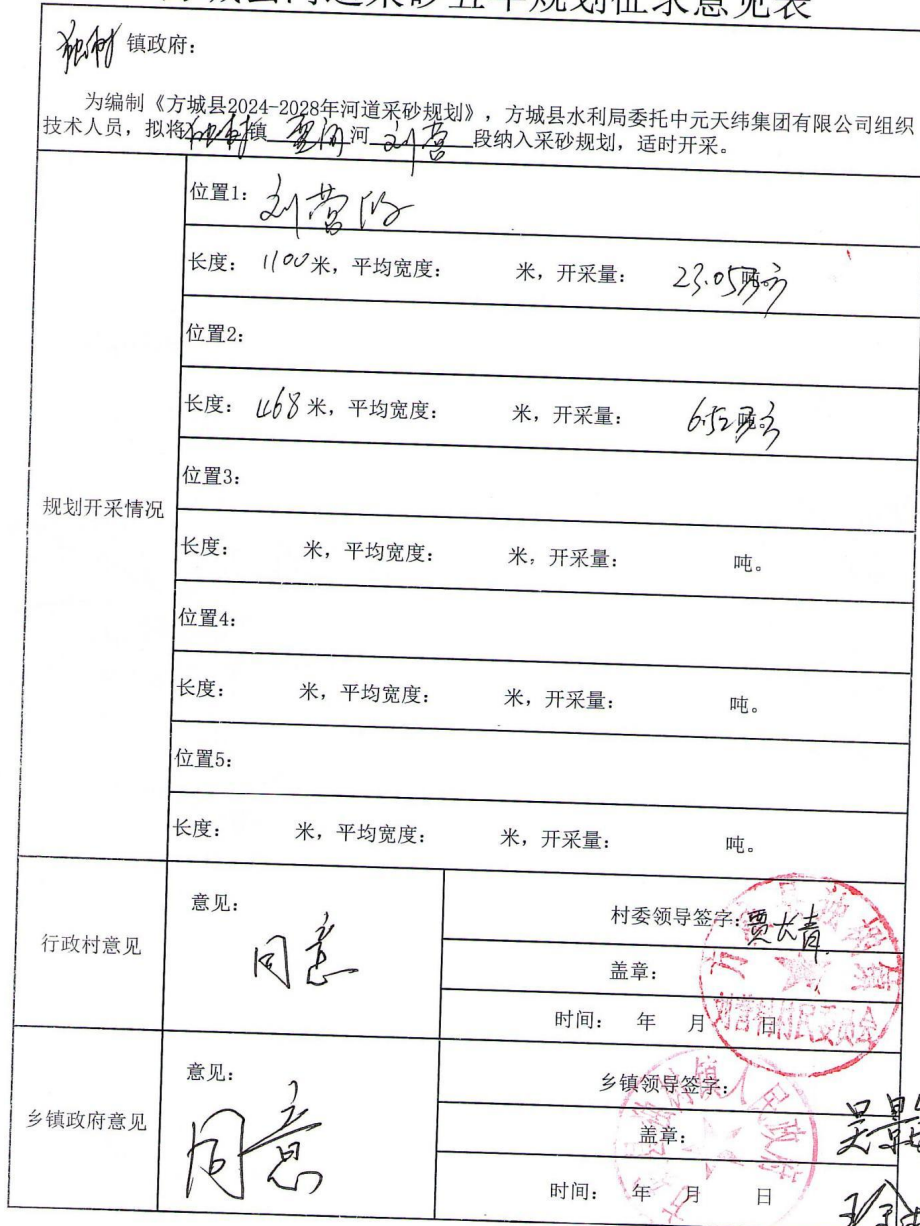 方城县河道采砂五年规划征求意见表
独树镇政府：
为编制《方城县2024-2028年河道采砂规划》，方城县水利局委托中元天纬集团有限公司组织
技术人员，拟将独树镇 河 刘营 段纳入采砂规划，适时开采。
规划开采情况
位置1：刘营段
长度：1100米，平均宽度： 米，开采量： 23.05万方
位置2：
长度：468米，平均宽度： 米，开采量： 6.52万方
位置3：
长度： 米，平均宽度： 米，开采量： 吨。
位置4：
长度： 米，平均宽度： 米，开采量： 吨。
位置5：
长度： 米，平均宽度： 米，开采量： 吨。
行政村意见
意见：
同意
村委领导签字：贾长青
盖章：
刘营村村民委员会
时间： 年 月 日
乡镇政府意见
意见：
同意
乡镇领导签字：
盖章：
镇人民政府
时间： 年 月 日